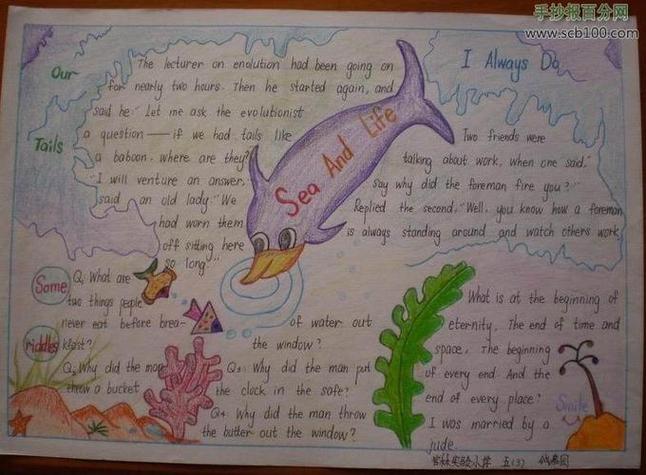 手抄报百分网
www.scb100.com
Our
Tails
The lecturer on enolution had been going on
for nearly two hours. Then he started again, and
said he" Let me ask the evolutionist
a question — if we had tails like
a baboon. where are they?
"I will venture an answer,"
said an old lady." We
had worn them
off sitting here
so long."
Sea And Life
I Always Do
Two friends were
talking about work, when one said."
Say why did the foreman fire you?"
Replied the second. "Well, you know how a foreman
is always standing around and watch others work
Some
riddles
Q1: What are
two things people
never eat before brea-
kfast?
Q2: Why did the man
throw a bucket
of water out
the window?
Q3: Why did the man put
the clock in the safe?
Q4: Why did the man throw
the butter out the window?
What is at the beginning of
eternity. The end of time and
space. The beginning
of every end. And the
end of every place?
Smile
I was married by a
jude.
实验小学 五(3)